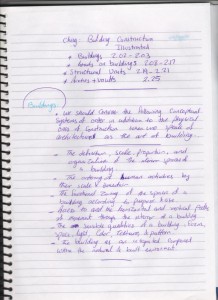 Ching: Building Construction
Illustrated
• Buildings 2.02 - 2.03
• Loads on buildings 2.08 - 2.17
• Structural Units 2.19 - 2.21
2.25
Buildings
• We should consider the following conceptual
systems of order in addition to the physical
ones of construction when we speak of
architecture as the art of building
- The definition, scale, proportion, and
organization of the interior spaces of
a building.
- The ordering of human activities by
their scale & dimension
- The functional zoning of the spaces of a
building according to purpose & use
- Access to and the horizontal and vertical paths
of movement through the interior of a building.
- The sensible qualities of a building: form,
space, light, color, texture & pattern
- The building as an integrated component
within the natural & built environment